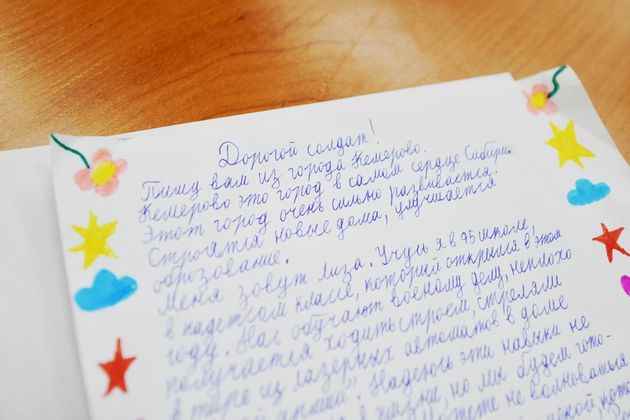 Дорогой солдат!
Пишу вам из города Кемерово.
Кемерово это город в самом сердце Сибири.
Этот город очень сильно развивается.
Строятся новые дома, улучшается
оброзование.
Меня зовут Лиза. Учусь я в 95 школе,
в кадетсом класе, который открылся в этом
году. Нас обучают военному делу, неплохо
получается ходить строем, стреляли
в тире из лазерных автоматов в доме
армии". Надеюсь эти навыки не
в жизни, но мы будем гото-
можете не волноваться